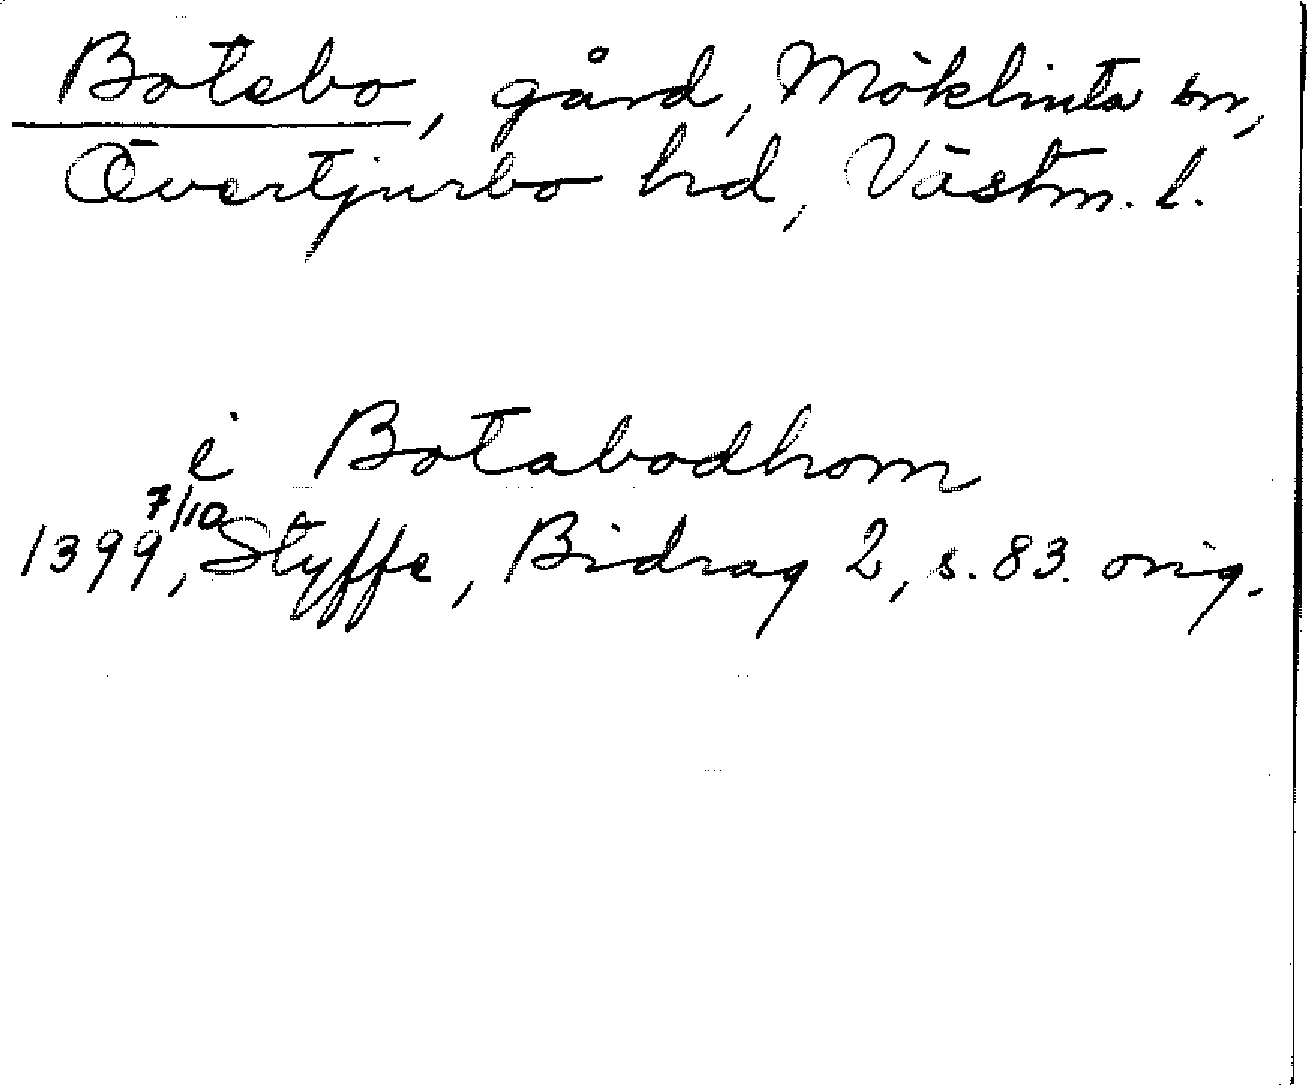 Botebo, gård, Möklinta sn,
Övertjurbo hd, Västm. l.
i Botabodhom
1399 7/10, Styffe, Bidrag 2, s. 83. orig.